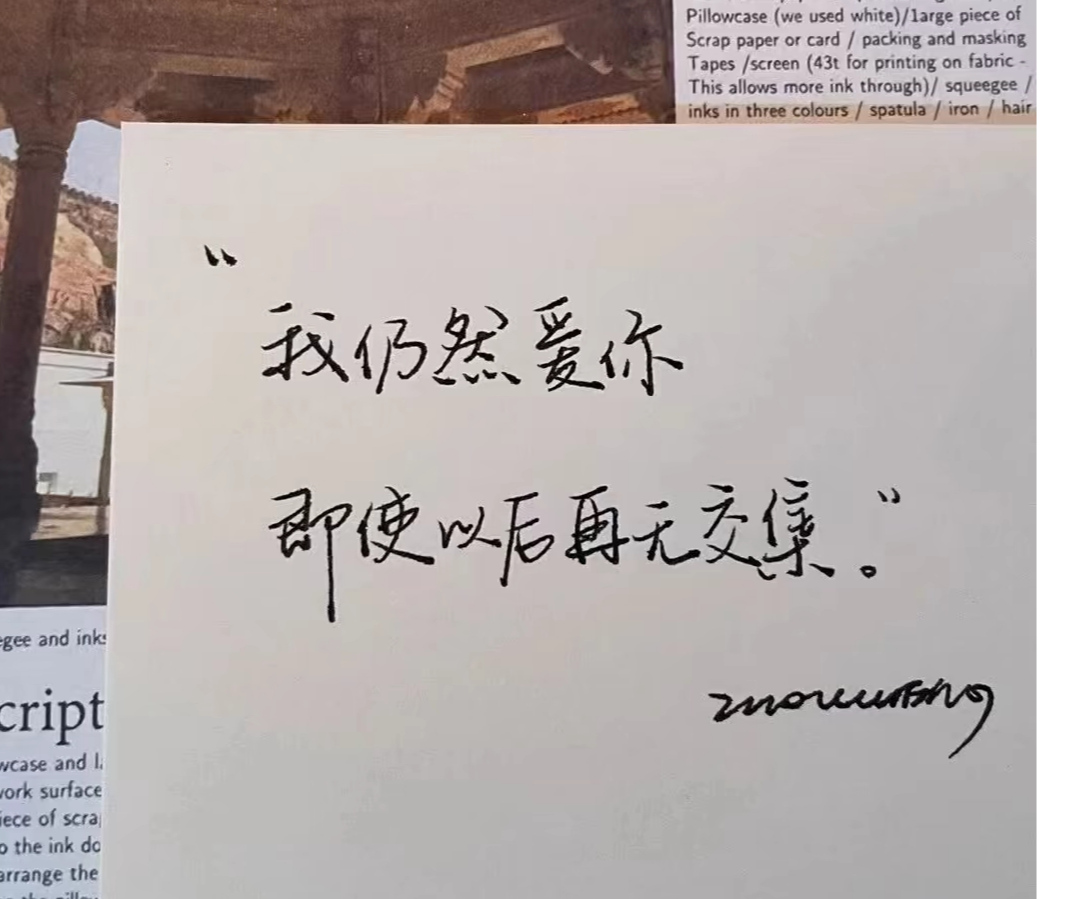 Pillowcase (we used white)/large piece of
Scrap paper or card / packing and masking
Tapes /screen (43t for printing on fabric -
This allows more ink through)/ squeegee /
inks in three colours / spatula / iron / hair
“
我仍然爱你
即使以后再无交集。”
egee and inks
cript
wcase and l
work surface
iece of scra
o the ink do
arrange the